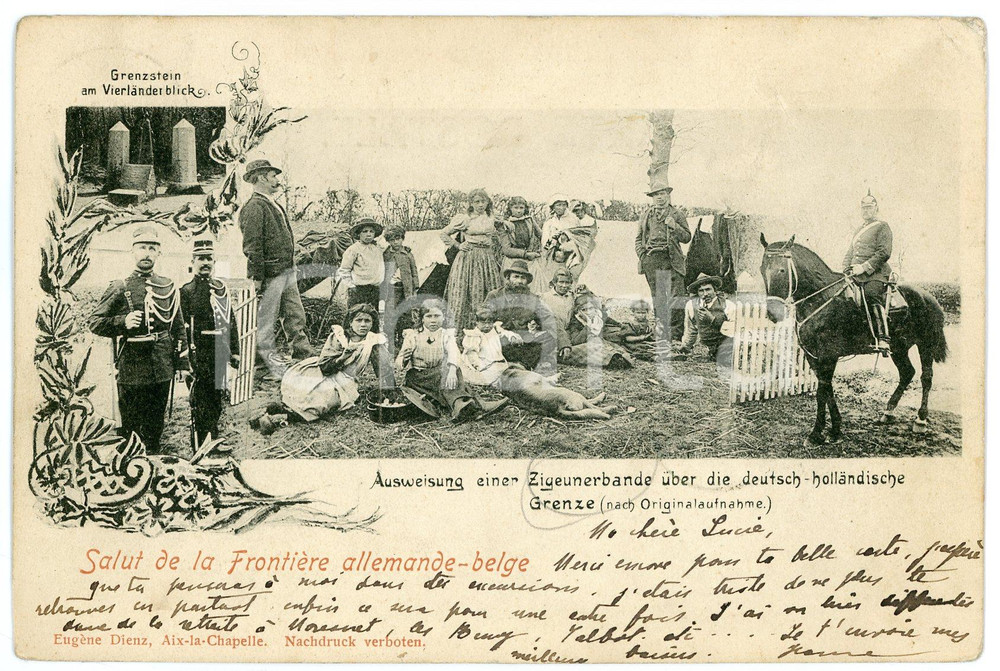 Grenzstein
am Vierländerblick.
Ausweisung einer Zigeunerbande über die deutsch-holländische
Grenze (nach Originalaufnahme.)
Salut de la Frontière allemande-belge
Ma chère Lucie,
Merci encore pour ta belle carte, j'espère
que tu penseras à moi dans tes excursions, j'étais triste de ne plus te
retrouver en partant, enfin ce sera pour une autre fois. J'ai vu hier
dans de la retraite à Moresnet, les Talbot, etc.... Je t'envoie mes
meilleurs baisers.
Eugène Dienz, Aix-la-Chapelle. Nachdruck verboten.